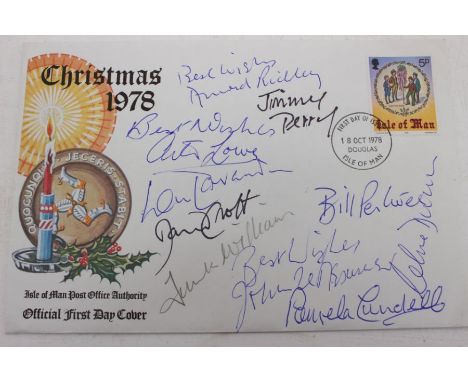 Christmas
1978
Best Wishes
Arnold Ridley
Jimmy
Perry
5P
Isle of Man
FIRST DAY OF ISSUE
18 OCT 1978
DOUGLAS
ISLE OF MAN
Best Wishes
Arthur Lowe
QUOCUNQUE · JECERIS · STABIT
Ian Lavender
David Croft
Frank Williams
Bill Pertwee
Best Wishes
John Le Mesurier
Clive Dunn
Pamela Cundell
Isle of Man Post Office Authority
Official First Day Cover